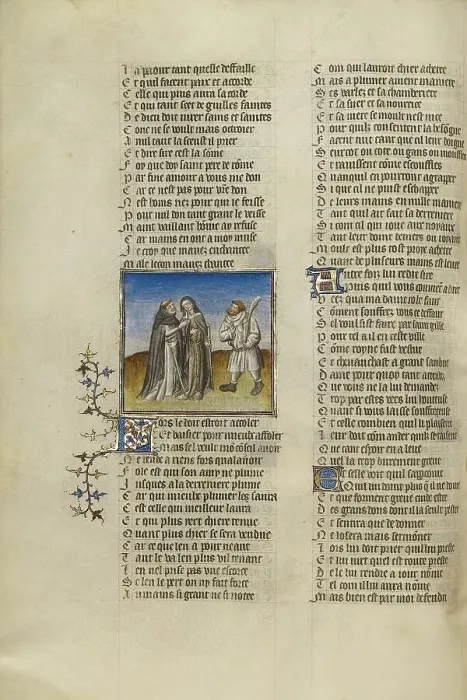 J a paour tant quelle deffaille
E t quil facent paix et accorde
C elle qui plus aura sa corde
E t qui tant scet de guilles faintes
D e dieu doit iurer sains et saintes
C onc ne se voult mais octroier
A nul tant la sceust il prier
E t dire sire cest la some
F oy que doy saint pere de rome
P ar fine amour a vous me don
C ar ce nest pas pour vre don
N est homs nez pour qui le feisse
P our nul don tant grant le veisse
M aint vaillant home ay refuse
C ar mains en ont a moy muse
J e croy que mauez enchantee
M ale lecon mauez chantee
Lors le doit estroit accoler
E t baisier pour mieulx affoler
M ais sel veult mon conseil auoir
N e tende a riens fors qua lauoir
F ole est qui son amy ne plume
J usques a la derreniere plume
C ar qui mieulx plumer les saura
C est celle qui meilleur laura
E t qui plus iert chier tenue
Q uant plus chier se sera vendue
C ar ce que len a pour neant
T ant le va len plus vil tenant
J en nel prise pas vne escorce
S e len le pert on ny fait force
A u mains si grant ne si notee
C om qui lauroit chier achetee
M ais a plumer aduient maniere
S es varlez et sa chamberiere
E t sa suer et sa nourrice
E t sa mere se moult nest nice
P our quilz consentent la besoigne
F acent tuit tant que cil leur doigne
S eurcot ou cote ou gans ou mouffles
E t rauissent come escouffles
Q uanquil en pourront agrapper
S i que cil ne puist eschaper
D e leurs mains en nulle maniere
T ant quil ait fait sa derreniere
S i com cil qui ioue aux noyaux
T ant leur doint deniers ou ioiaux
M oult est plus tost proie achete
Q uant de plusieurs mains est leuee
Autre fois lui redie sire
P uis quil vous conuient a dire
V eez qua ma dame robe fault
C oment souffrez vous ce deffaut
S el voulsist faire par saint gille
P our tel a il en ceste ville
C ome royne fust vestue
E t cheuauchast a grant sambue
D ame pour quoy tant attendez
Q ue vous ne la lui demandez
T rop par estes vers lui honteuse
Q uant si vous laisse souffreteuse
E t celle combien quil li plaisent
L eur doit commander quilz se taisent
Q ue tant espoir en a leue
Q uel la trop durement greue
E t selle voit quil sapercoiue
Q uil lui doint plus quil ne doiue
E t que forment greue cuide estre
D es grans dons dont il la seult pestre
E t sentira que de donner
N e losera mais sermonner
L ors lui doit prier quil lui preste
E t lui iurt quel est toute preste
D e le lui rendre a iour nome
T el com il lui aura nome
M ais bien est par moi defendu